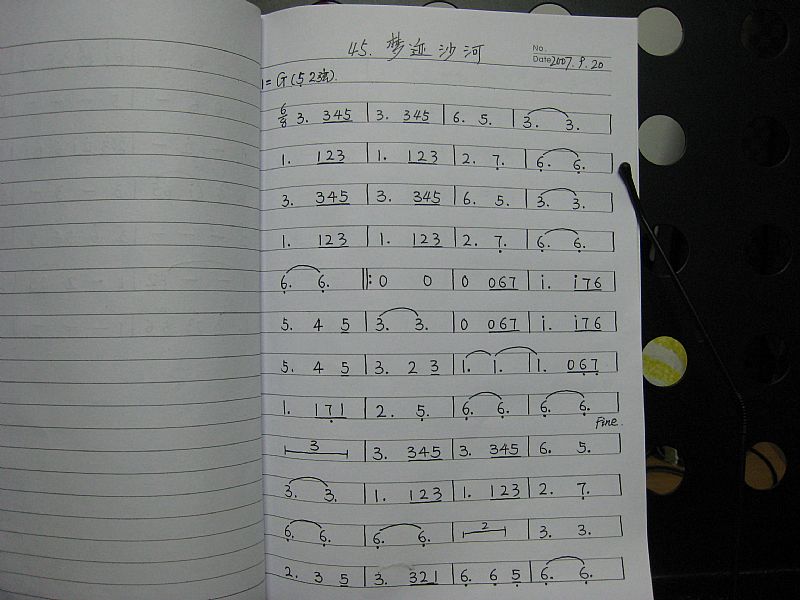 45. 梦迹沙河
No.
Date 2007.9.20
1=G(5 2弦).
6/8 3. 345 | 3. 345 | 6. 5. | 3. 3. |
1. 123 | 1. 123 | 2. 7. | 6. 6. |
3. 345 | 3. 345 | 6. 5. | 3. 3. |
1. 123 | 1. 123 | 2. 7. | 6. 6. |
6. 6. ‖: 0 0 | 0 067 | i. i76 |
5. 4 5 | 3. 3. | 0 067 | i. i76 |
5. 4 5 | 3. 2 3 | 1. 1. | 1. 067 |
1. 171 | 2. 5. | 6. 6. | 6. 6. |
Fine.
3 | 3. 345 | 3. 345 | 6. 5. |
3. 3. | 1. 123 | 1. 123 | 2. 7. |
6. 6. | 6. 6. | 2 | 3. 3. |
2. 3 5 | 3. 321 | 6. 6 5 | 6. 6. |